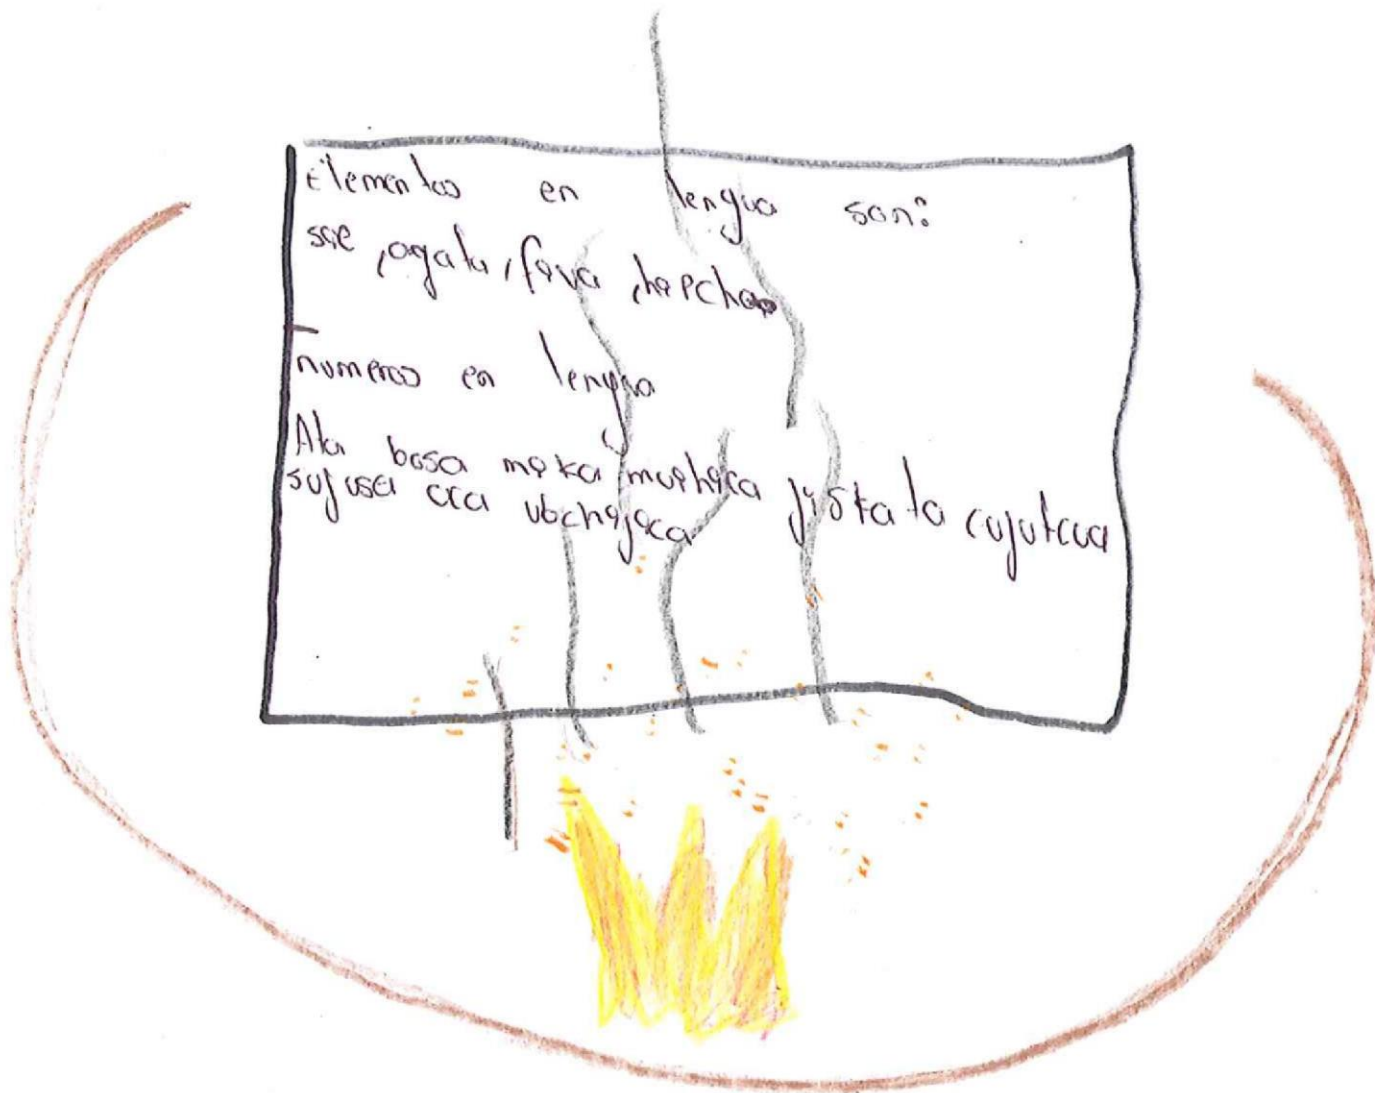 Elementos en lengua son:
sie, agata, fiva, hapcha
numeros en lengua
Ata bosa mɨka muɨhɨca jɨska ta cujutcua
sujusa aca ubchɨjɨca